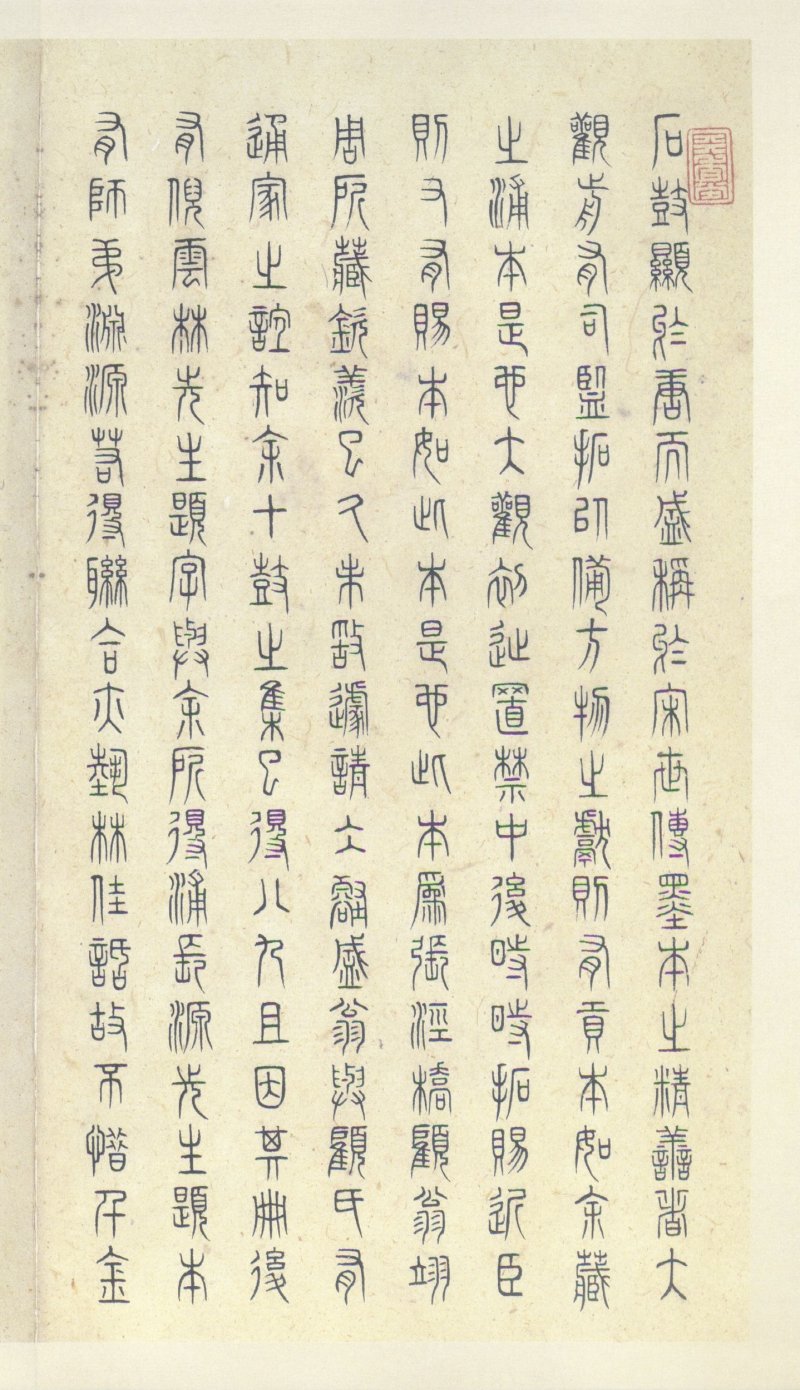 石鼓顯於唐而盛稱於宋世傳墨本之精善者大
觀前有司監拓以備方物之獻則有貢本如余藏
之浦本是也大觀初徙置禁中後時時拓賜近臣
則又有賜本如此本是也此本屬張涇橋顧翁翊
周所藏欽羡已久未敢遽請盛翁與顧氏有
通家之誼知余十鼓之集已得八九且因其冊後
有倪雲林先生題字與余所得浦長源先生題本
有師弟淵源若得聯合亦藝林佳話故不惜千金